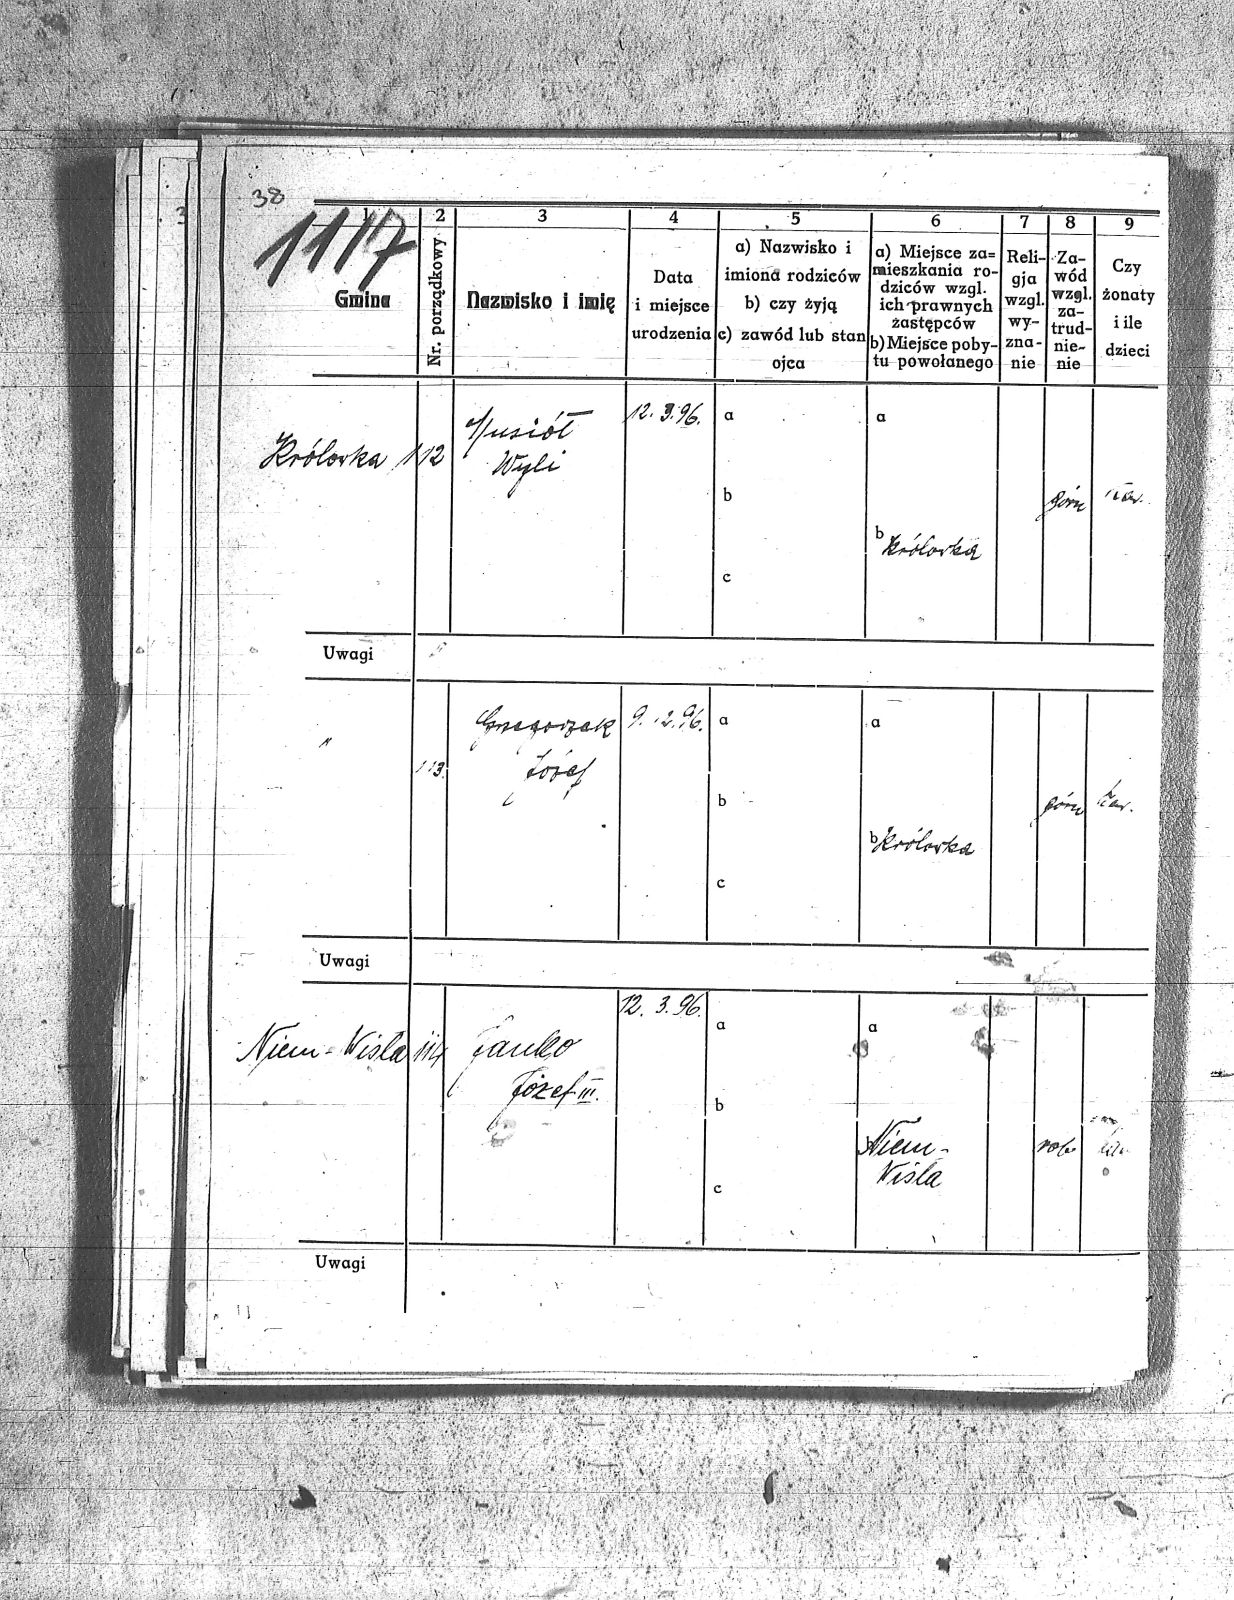 38
1117
1 2 3 4 5 6 7 8 9
Gmina
Nr. porządkowy
Nazwisko i imię
Data
i miejsce
urodzenia
a) Nazwisko i
imiona rodziców
b) czy żyją
c) zawód lub stan
ojca
a) Miejsce za=
mieszkania ro-
dziców wzgl.
ich prawnych
zastępców
b) Miejsce poby-
tu powołanego
Reli-
gja
wzgl.
wy-
zna-
nie
Za-
wód
wzgl.
za-
trud-
nie-
nie
Czy
żonaty
i ile
dzieci
Królovka 112
Musiół
Wyli
12. 3. 96.
a
b
c
a
b Królovka
górn
Uwagi
" 113
Gregorzek
Józef
9. 12. 96.
a
b
c
a
b Królovka
górn
kaw.
Uwagi
Niem-Wisła 114
Janko
Józef III.
12. 3. 96.
a
b
c
a
Niem-
Wisla
rob
Uwagi